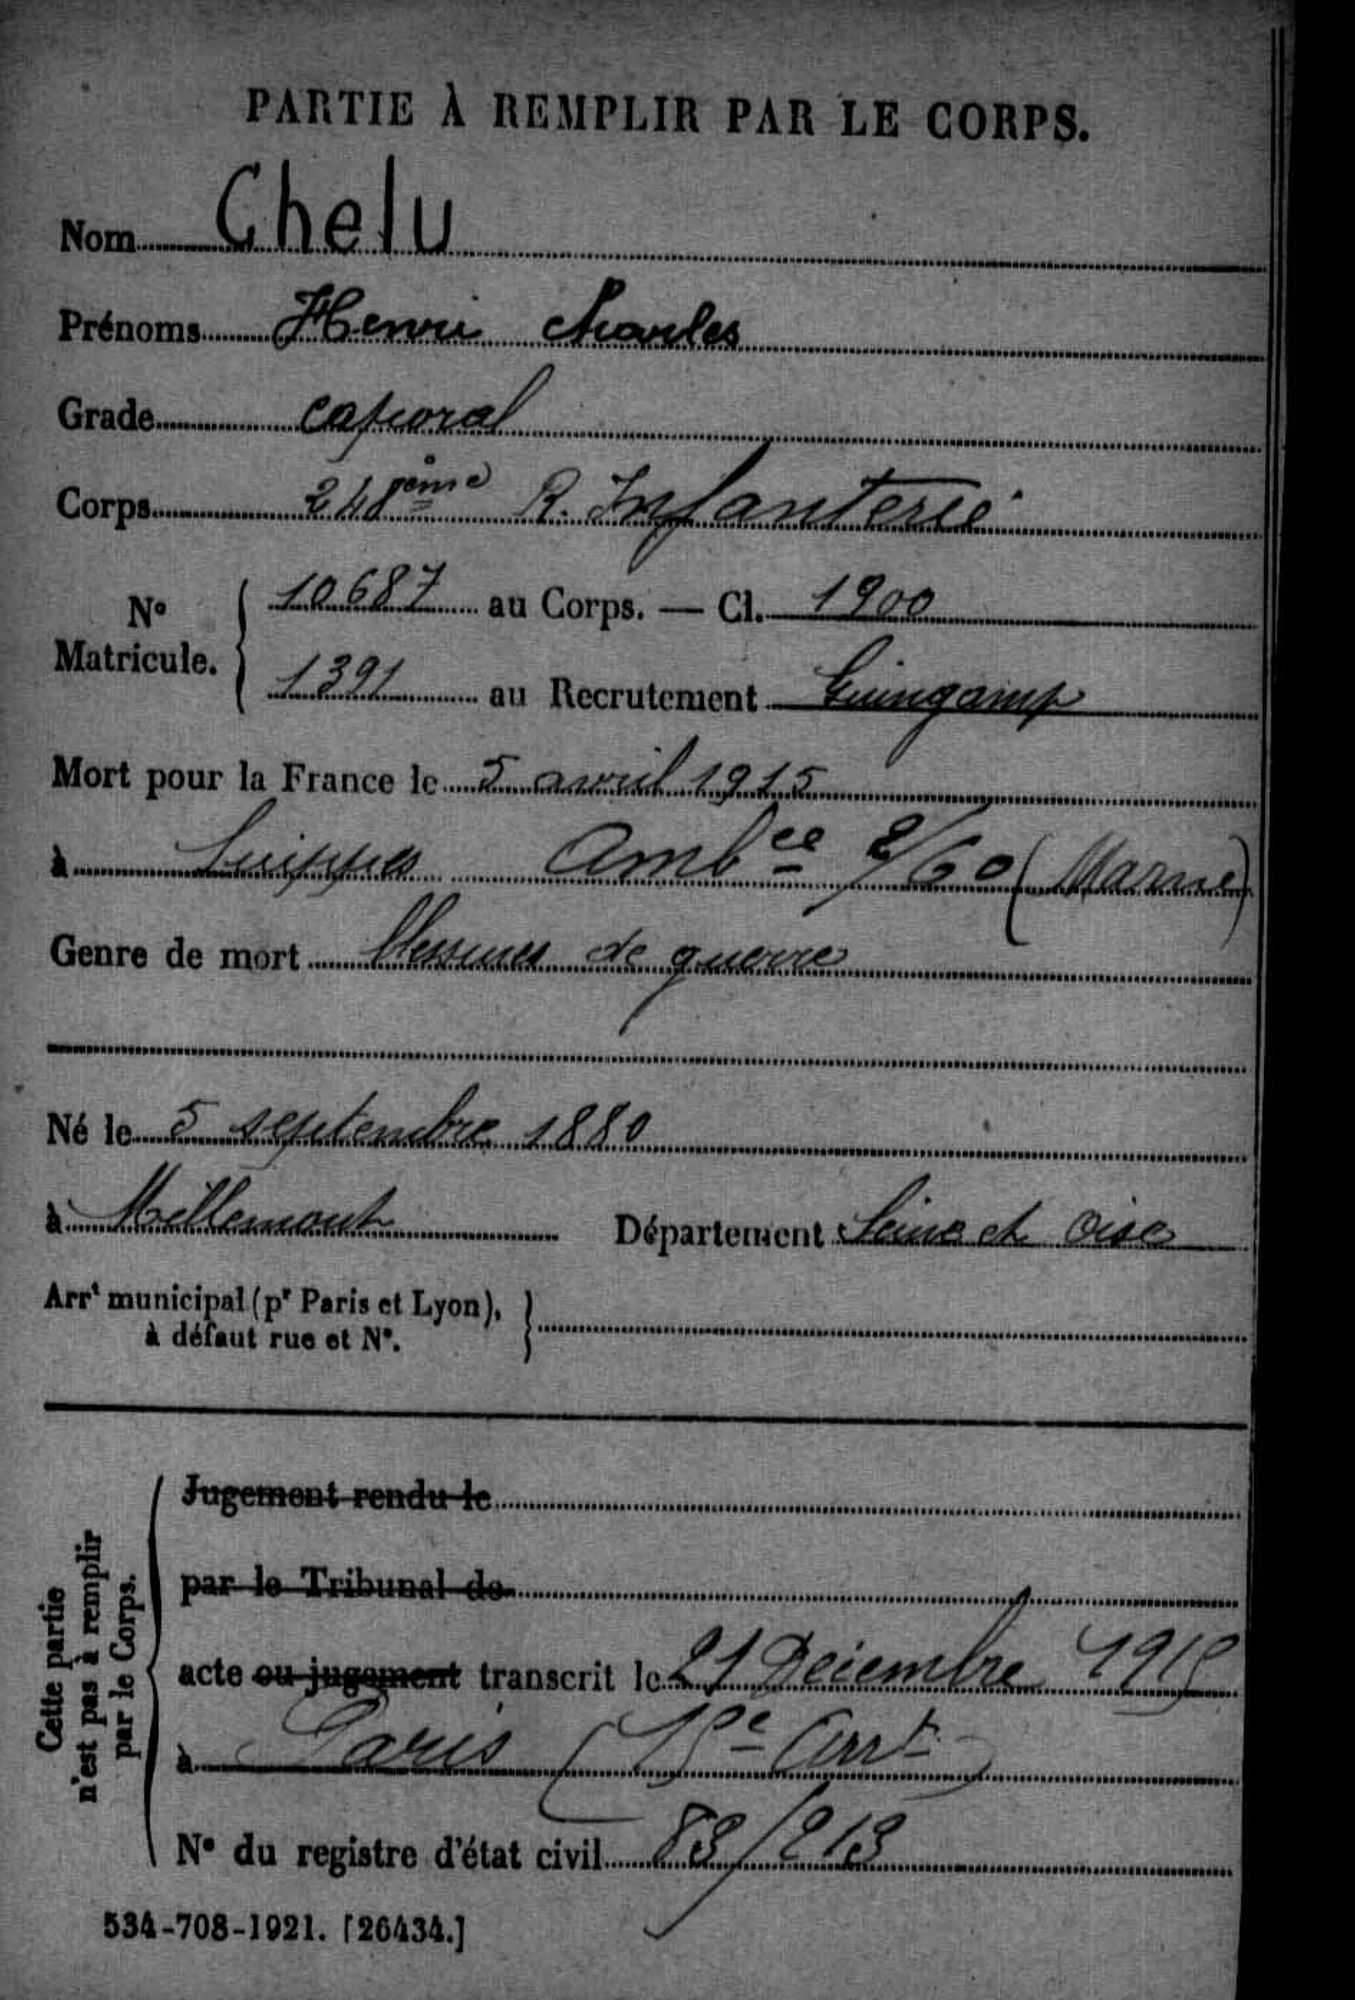 PARTIE À REMPLIR PAR LE CORPS.
Nom Chelu
Prénoms Henri Charles
Grade caporal
Corps 248ème R. Infanterie
No Matricule. { 10687 au Corps. — Cl. 1900
1391 au Recrutement Guingamp
Mort pour la France le 5 avril 1915
à Suippes Ambce 2/60 (Marne)
Genre de mort blessures de guerre
Né le 5 septembre 1880
à Millemont Département Seine et Oise
Arrt municipal (pr Paris et Lyon), }
à défaut rue et No.
Cette partie
n'est pas à remplir
par le Corps.
Jugement rendu le
par le Tribunal de
acte ou jugement transcrit le 21 Décembre 1915
à Paris (15e Arrt)
No du registre d'état civil
534-708-1921. [26434.]